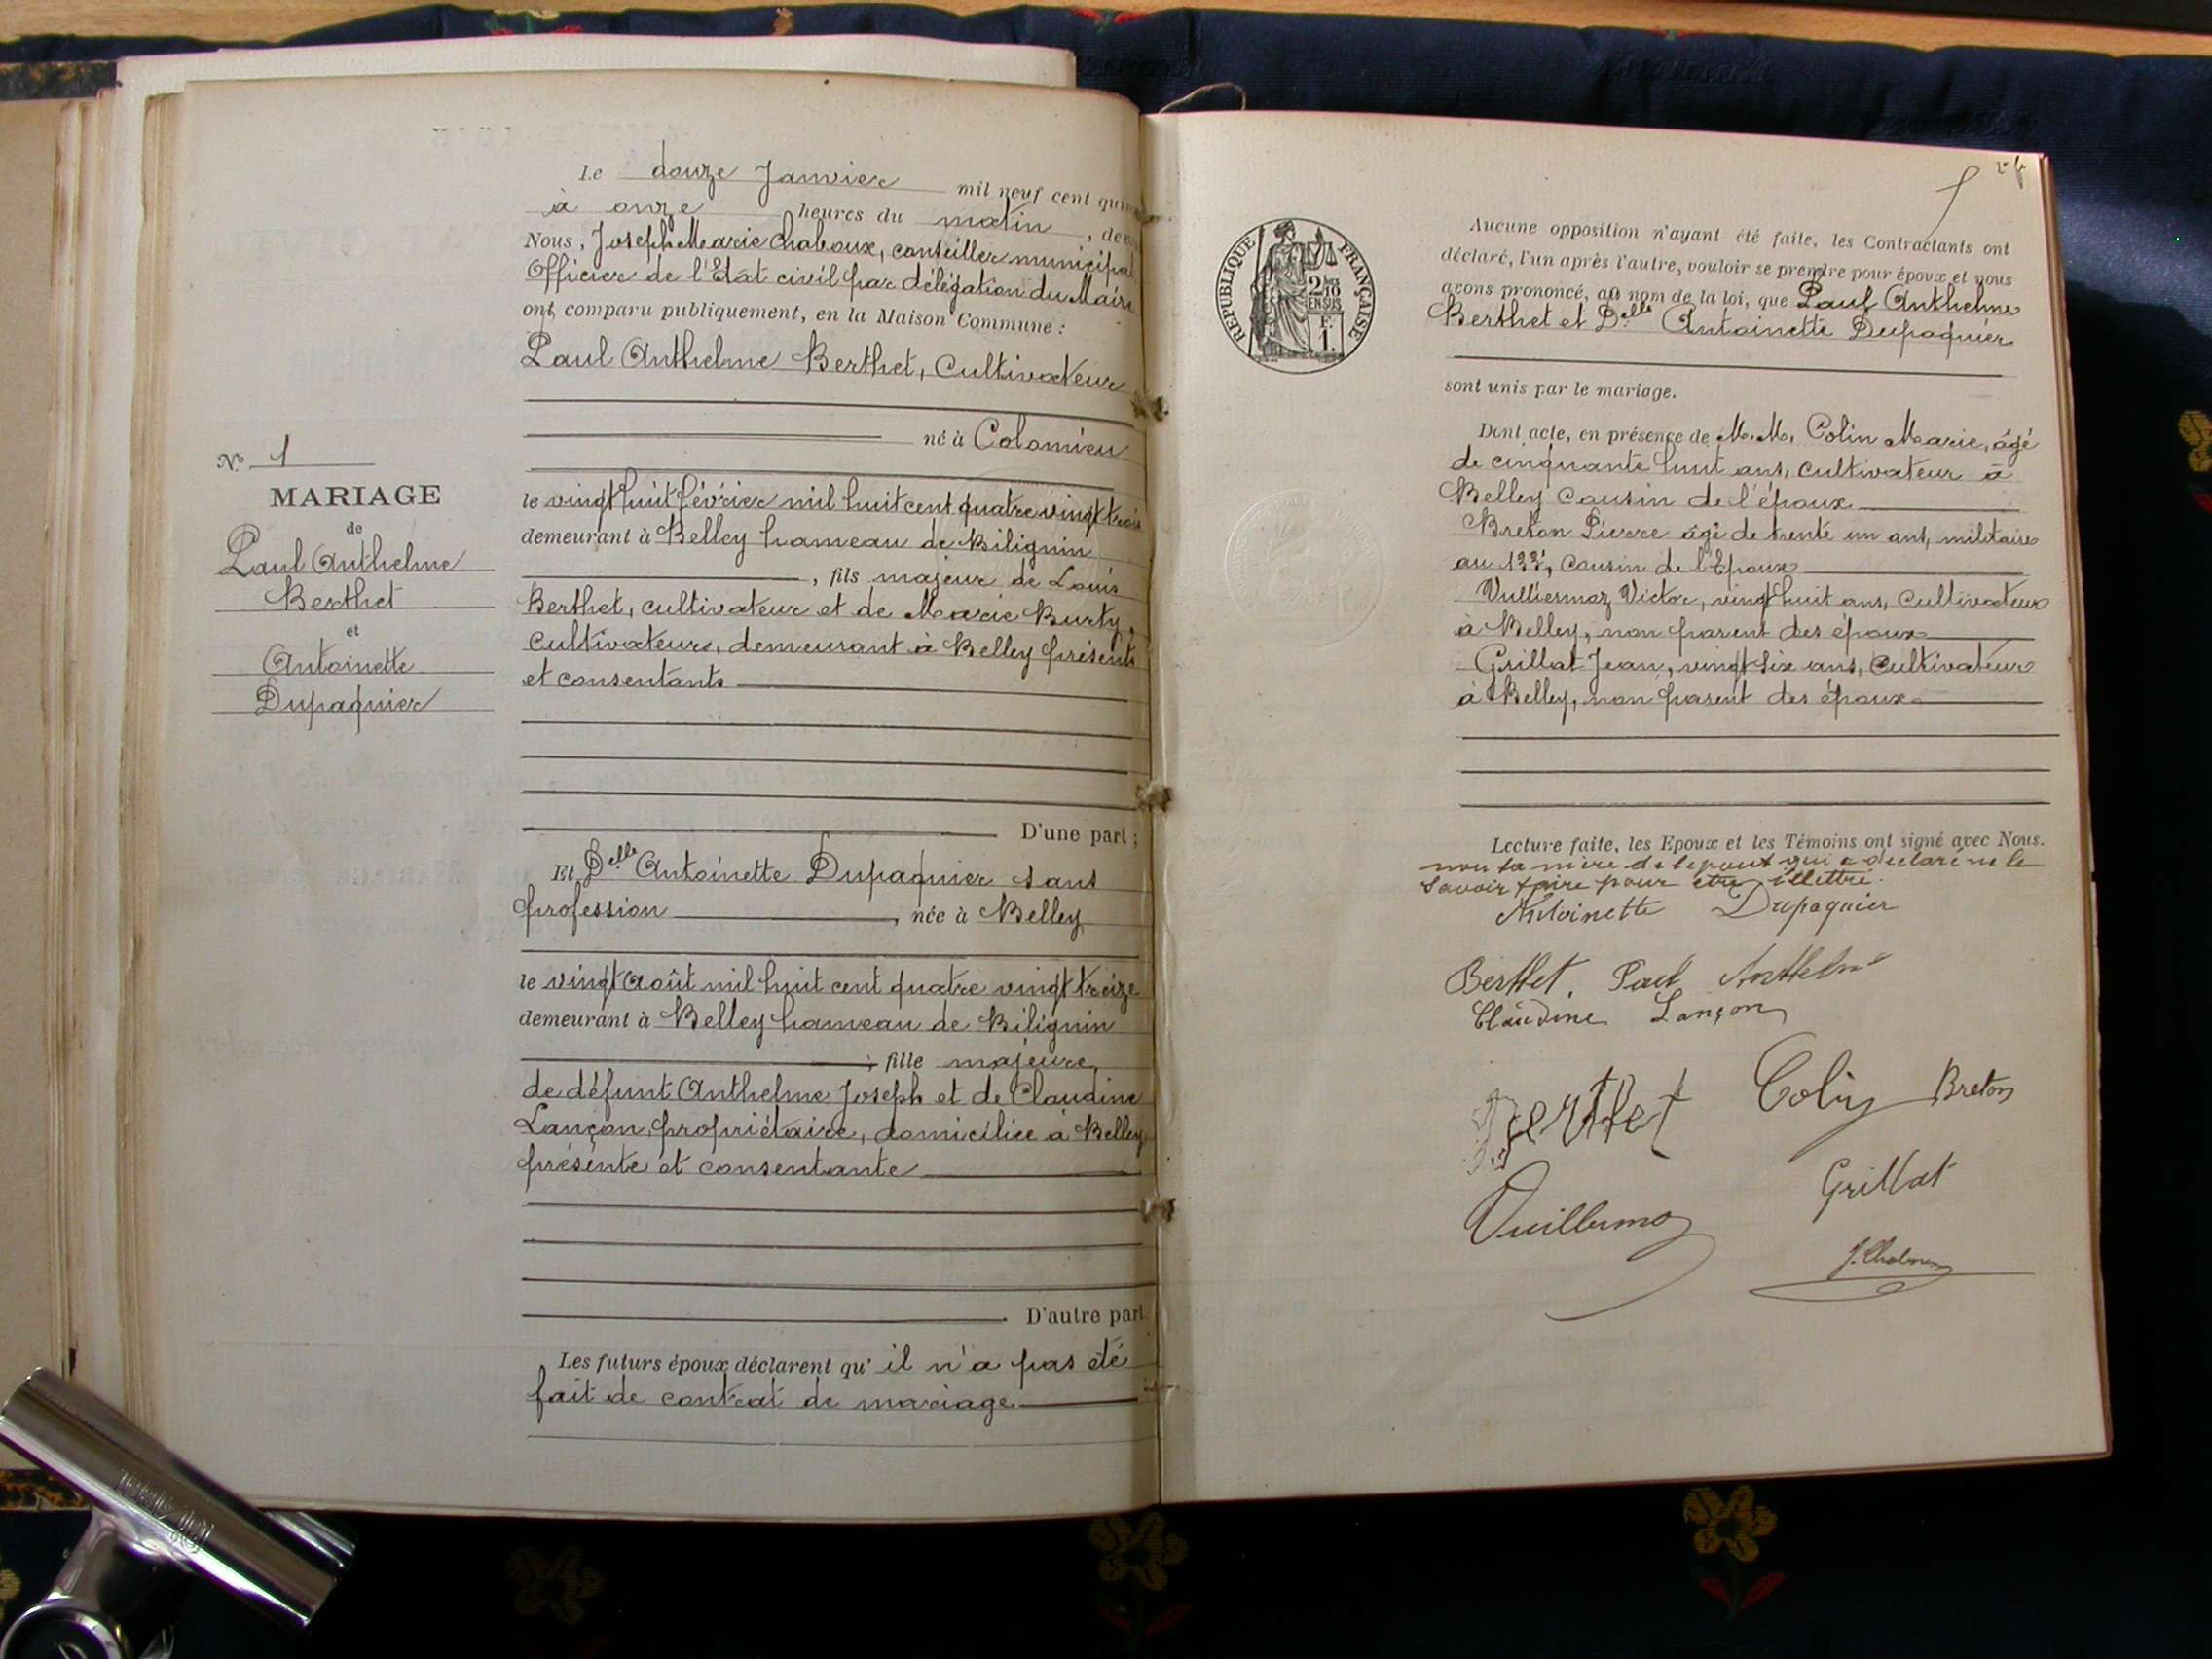 Le douze Janvier mil neuf cent
à onze heures du matin,
Nous, Joseph Marie Chaboux, conseiller municipal
Officier de l'Etat civil par délégation du Maire
ont comparu publiquement, en la Maison Commune :
Paul Anthelme Berthet, Cultivateur
né à Colomieu
le vingt huit février mil huit cent quatre vingt trois
demeurant à Belley hameau de Bilignin
, fils majeur de Louis
Berthet, cultivateur et de Marie Burty,
cultivateurs, demeurant à Belley présents
et consentants
D'une part ;
Et Delle Antoinette Dupaquier sans
profession, née à Belley
le vingt Août mil huit cent quatre vingt treize
demeurant à Belley hameau de Bilignin
; fille majeure
de défunt Anthelme Joseph et de Claudine
Lançon, propriétaire, domiciliée à Belley
présente et consentante
D'autre part
Les futurs époux déclarent qu' il n'a pas été
fait de contrat de mariage
N° 1
MARIAGE
de
Paul Anthelme
Berthet
et
Antoinette
Dupaquier
REPUBLIQUE FRANÇAISE
2/10
EN SUS
F.
1.
Aucune opposition n'ayant été faite, les Contractants ont
déclaré, l'un après l'autre, vouloir se prendre pour époux et nous
avons prononcé, au nom de la loi, que Paul Anthelme
Berthet et Delle Antoinette Dupaquier
sont unis par le mariage.
Dont acte, en présence de M.M. Colin Marie, âgé
de cinquante huit ans, cultivateur à
Belley cousin de l'époux
Breton Pierre âgé de trente un ans, militaire
au 133e, cousin de l'Epoux
Vulliermoz Victor, vingt huit ans, Cultivateur
à Belley, non parent des époux
Grillat Jean, vingt six ans, Cultivateur
à Belley, non parent des époux
Lecture faite, les Epoux et les Témoins ont signé avec Nous.
non la mère de l'époux qui a déclaré ne le
savoir faire pour être illettré.
Antoinette Dupaquier
Berthet Paul Anthelme
Claudine Lançon
Berthet Colin Breton
Grillat
Vuillermoz